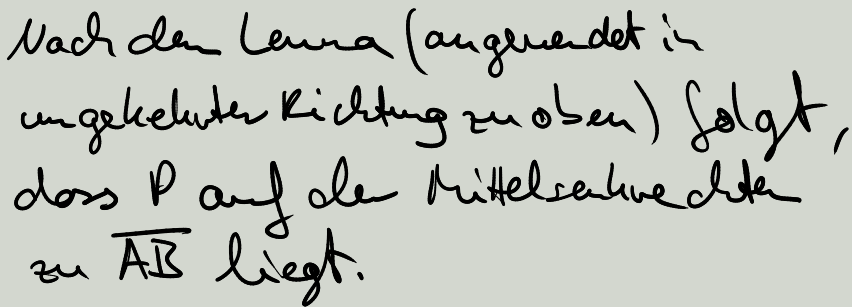 Nach dem Lemma (angewendet in
umgekehrter Richtung zu oben) folgt,
dass P auf der Mittelsenkrechten
zu \overline{AB} liegt.